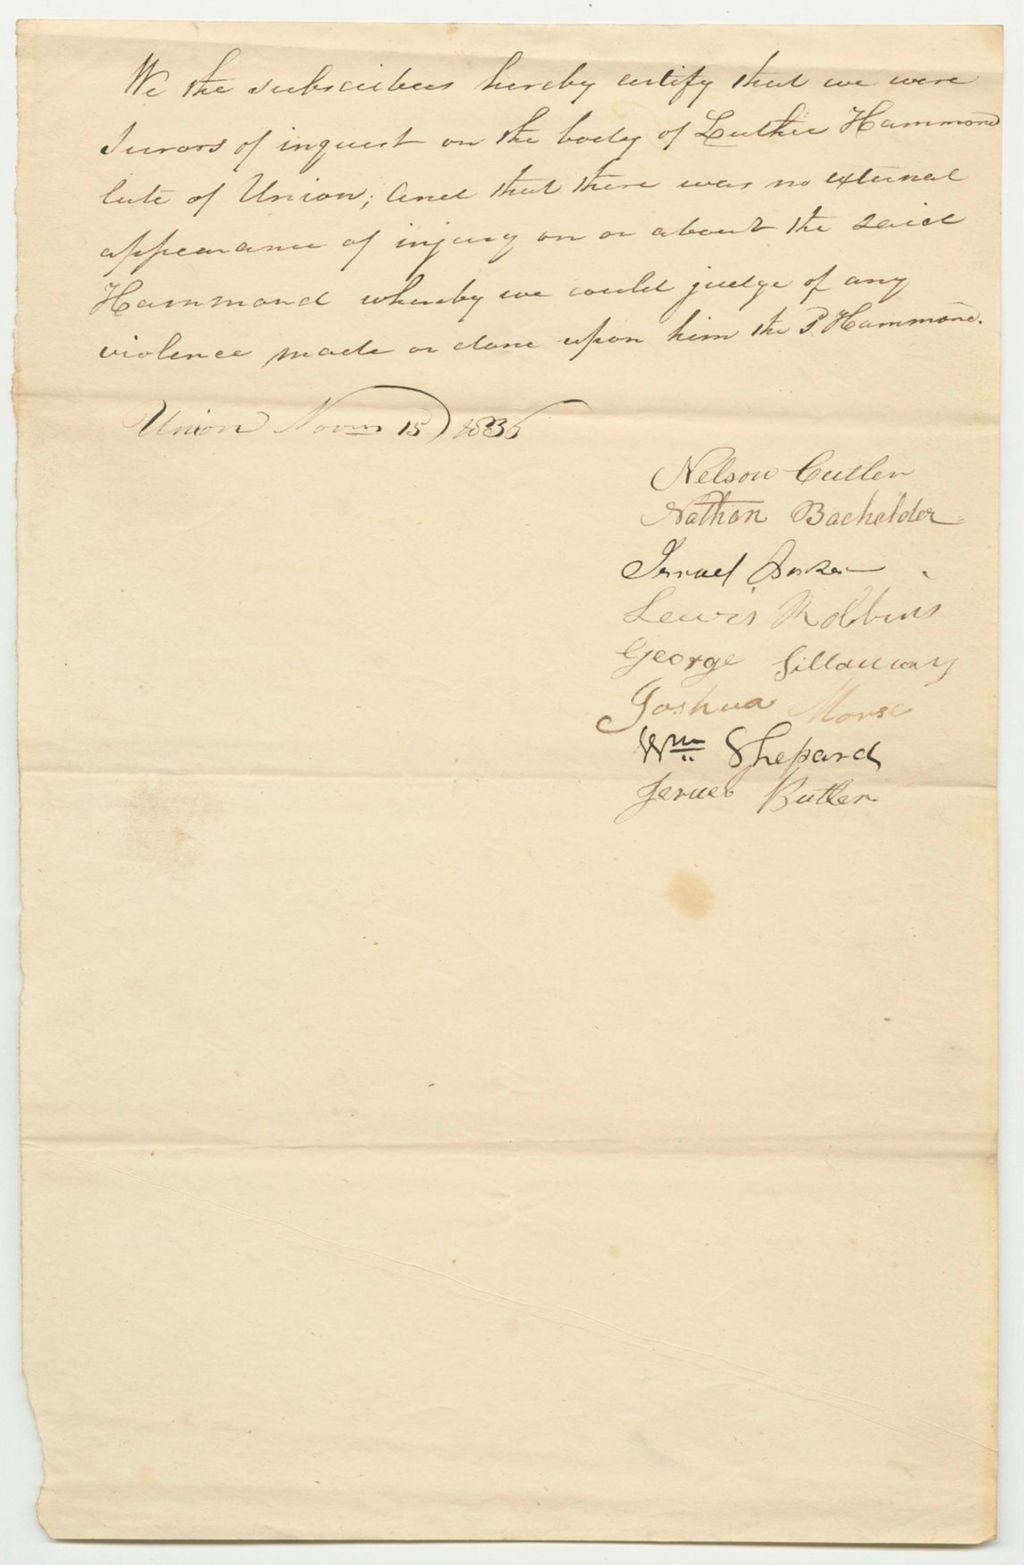 We the subscribers hereby certify that we were
Jurors of inquest on the body of Luther Hammond
late of Union; And that there was no external
appearance of injury on or about the said
Hammond whereby we could judge of any
violence made or done upon him the s'd Hammond.
Union Novm 15 1836
Nelson Cutler
Nathan Bachelder
Israel
Lewis Robbins
George Sillaway
Joshua Morse
Wm Shepard
James Butler